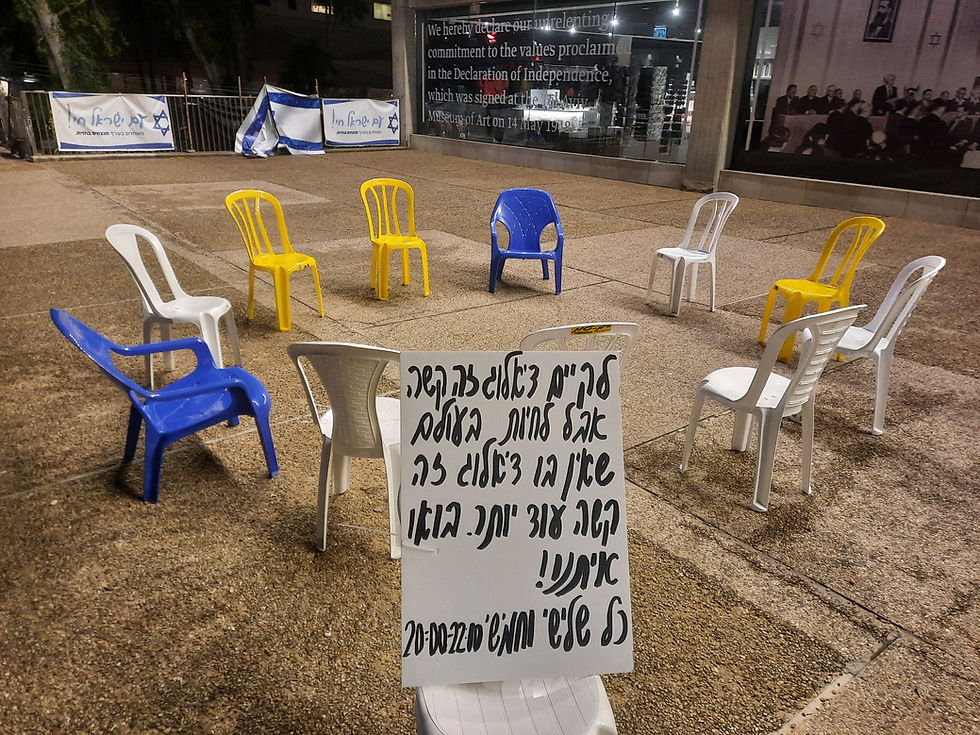 עם ישראל חי!
מאוחדים בעורף מנצחים בחזית.
עם ישראל חי!
מאוחדים בעורף מנצחים בחזית.
We hereby declare our unrelenting
commitment to the values proclaimed
in the Declaration of Independence,
which was signed at the Aviv
Museum of Art on 14 May
לקיים דיאלוג זה קשה
אבל לחיות בעולם
שאין בו דיאלוג זה
קשה עוד יותר. בואו
איתנו!
כל שלישי וחמישי 20:00-22:00